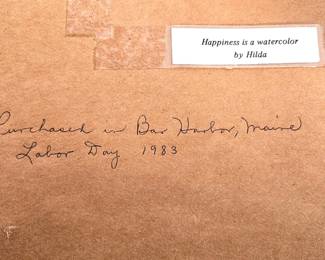 Happiness is a watercolor
by Hilda
Purchased in Bar Harbor, Maine
Labor Day 1983